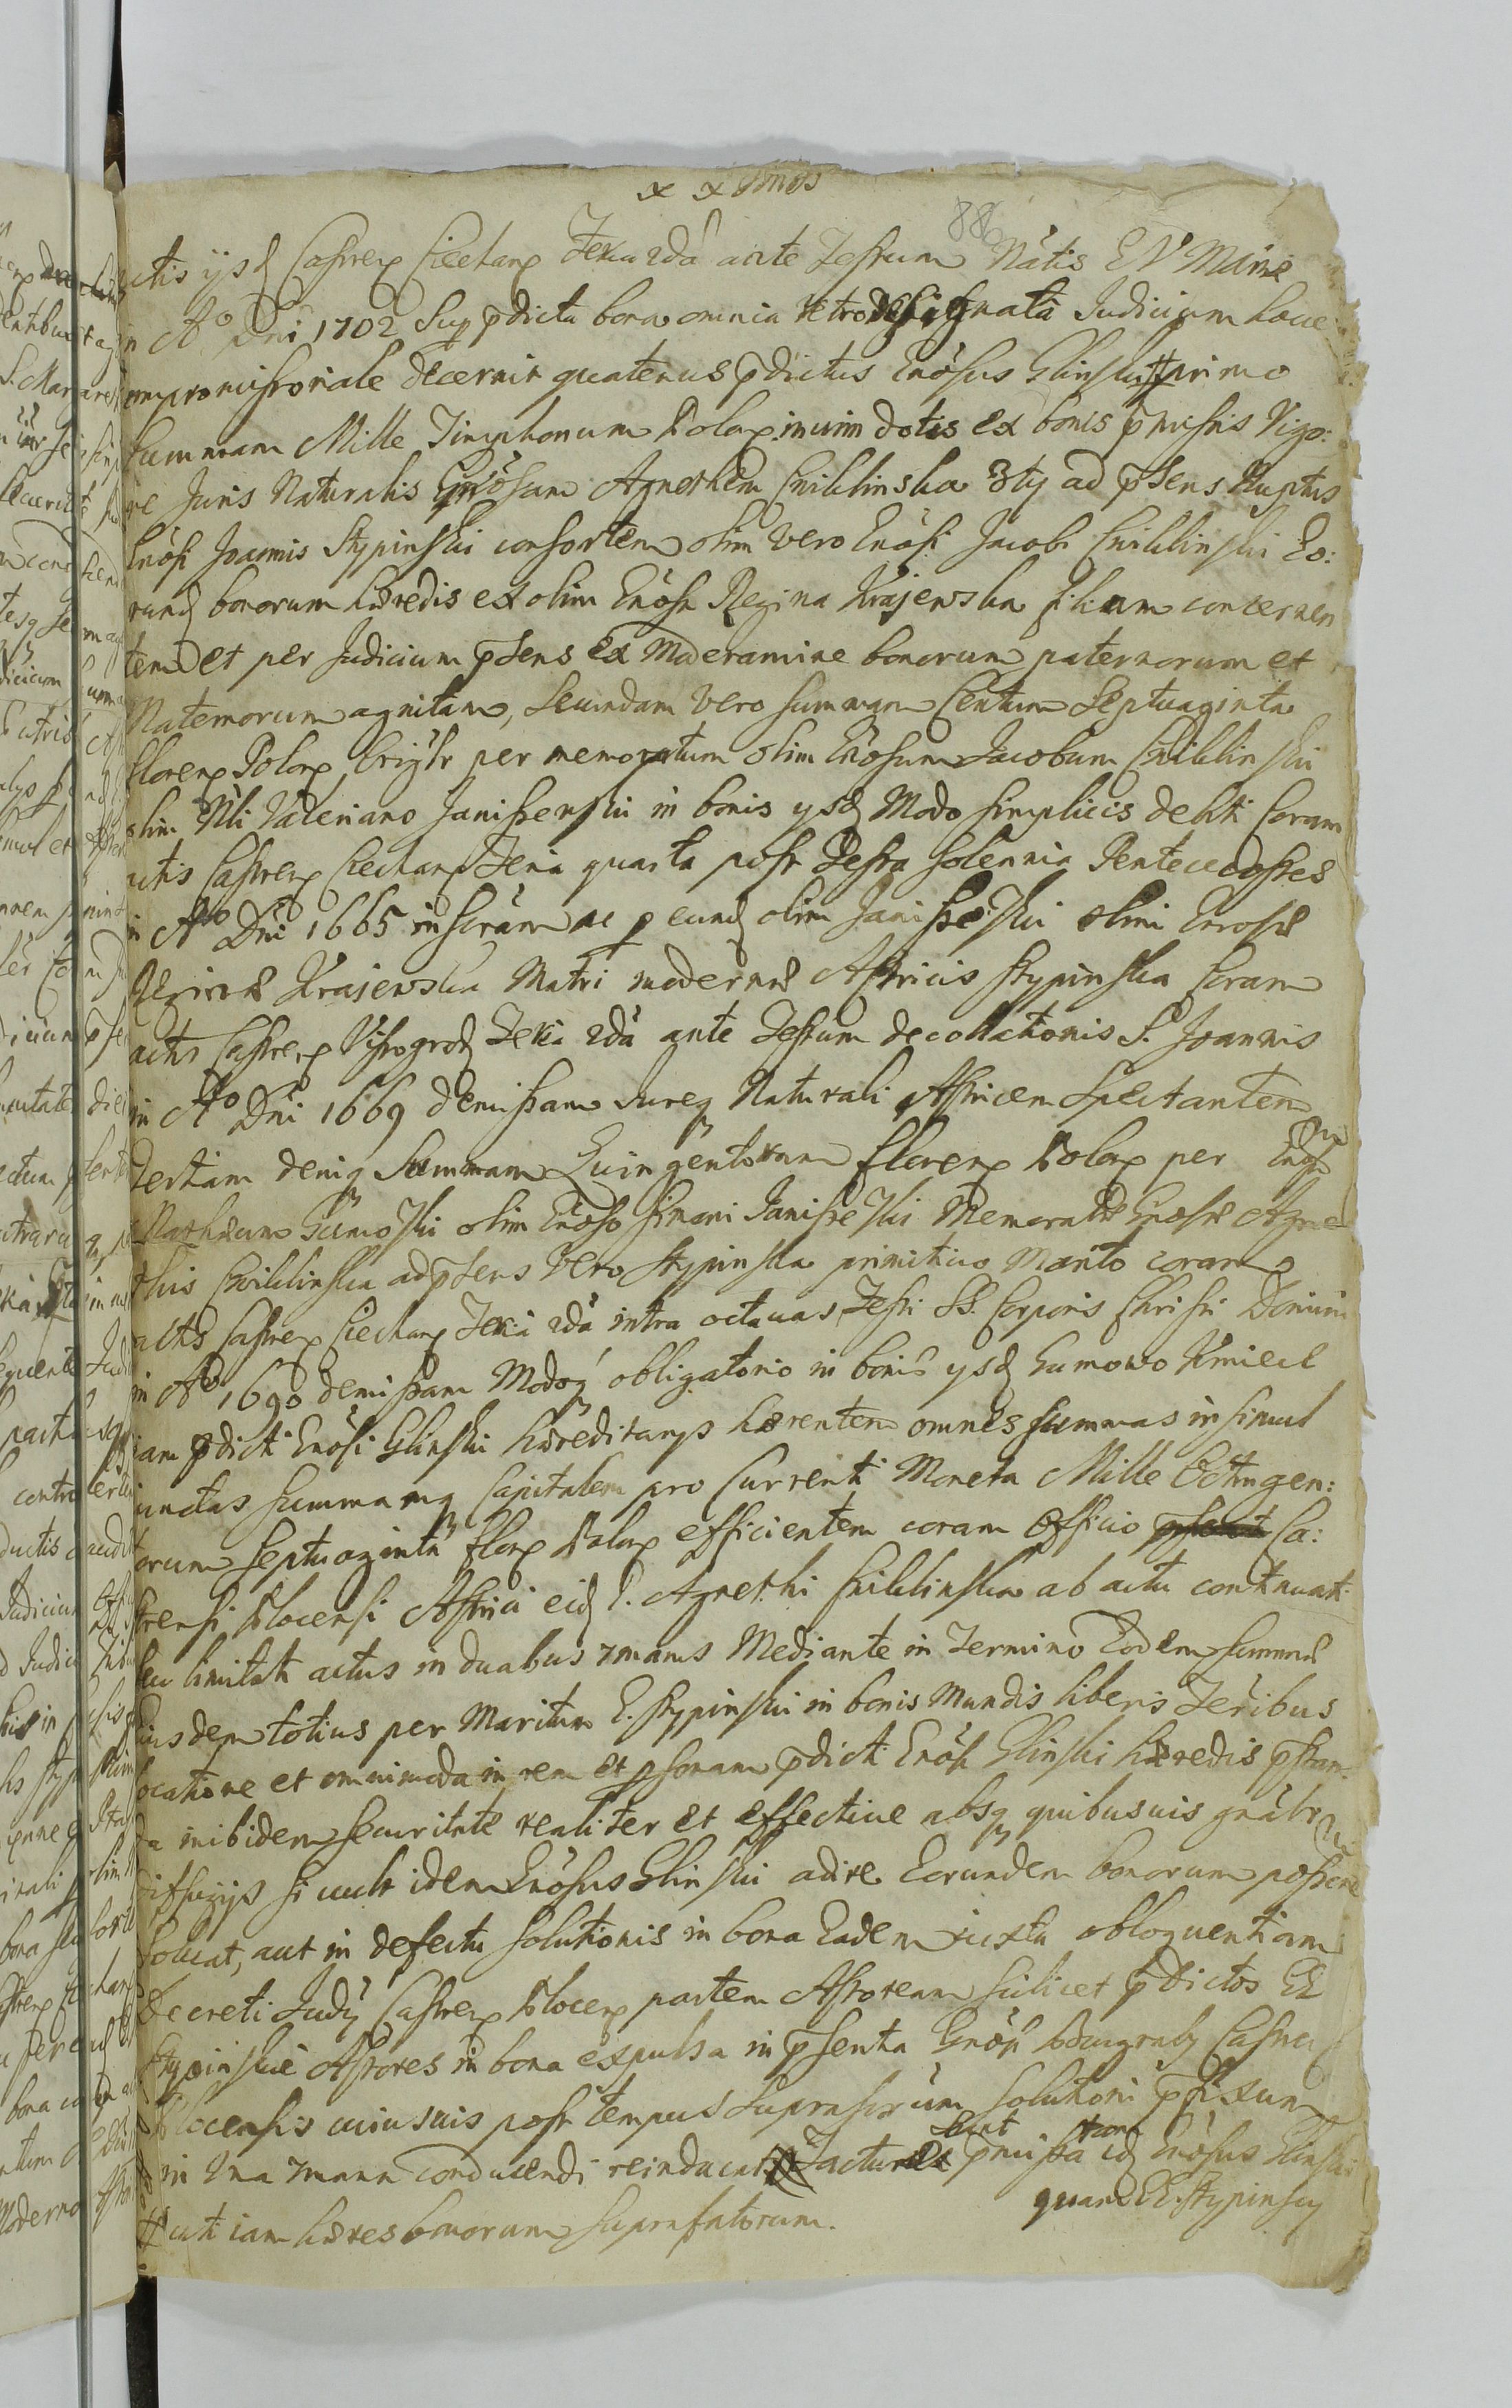 x x Omes
88
ctis ijsd Castren Ciechan Feria 2da ante Festum Natis B V Mariæ
in A° Dni 1702 Sup pdicta bona omnia retrodesignata Judicium hocce
ompromissoriale decernit quatenus pdictus Gnosus Glinski # primo
Summam Mille Timphonum Polon ... dotis ex bonis pmissis Vigo:
re Juris Naturalis Gnosam Agnethem Cwiklinska 3tij ad psens Nuptus
Gnosi Joannis Stypinski consortem olim vero Gnosi Jacobi Cwiklinski Eo:
rund bonorum hæredis ex olim Gnosa Regina Krajewska filiam concernen
tem et per Judicium psens ex Moderamine bonorum paternorum et
Maternorum agnitam, Secundam vero summam Centum Septuaginta
floren Polon brigtr per memoratum olim Gnosum Jacobum Cwiklinski
olim Nli Valeriano Janiszewski in bonis ysd Modo simplicis debiti Coram
actis Castren Ciechan Feria quarta post Festa solennia Pentecostes
in A° Dni 1665 inscram ac p eund olim Janiszewski olim Gnosæ
Reginæ Krajewska Matri modernæ Actricis Stypinska Coram
actis Castren Visrogrod Feria 2da ante Festum decollationis S. Joannis
in A° Dni 1669 demissam Jureq Naturali Actricem Spectantem
Tertiam deniq Summam Quingentorum floren Polon per Gnosum
Mathæum Gumoski olim Gnoso Simoni Janiszeski Memoratæ Gnosæ Agne
this Cwiklinska ad psens Vero Stypinska primitivo Marito coram
actis Castren Ciechan Feria 2da intra octavas Festi SS. Corporis Christi Domini
in A° 1690 demissam Modoq obligatorio in bonis ysd Gumowo Kmiece
iam pdicti Gnosi Glinski hæreditarys hærentem omnes summas in simul
iunctas summamq Capitalem pro Currenti Moneta Mille Octingen:
torum Septuaginta flor Polon efficientem coram Officio Ca:
strensi Plocensi Actrici eid G. Agnethi Cwiklinska ab actu continuati
seu limitati actus in duabus 7manis Mediante in Termino Eodem summæ
eiusdem totius per Maritum G. Stypinski in bonis Mundis liberis Teribus
locatione et omnimoda in rem et psonam pdicti Gnosi Glinski hæredis pstan
da inibidem securitate realiter et effective absq quibusvis gnalr
diffugijs si vult idem Gnosus Glinski adire Eorundem bonorum possone
solvat, aut in defectu solutionis in bona Eadem iuxta obloquentiam
decreti Judij Castren Plocen partem Actoream scilicet pdictos GG
Stypinskie Actores in bona expulsa in psentia Gnosi Burgraby Castren
Plocensis cuiusvis post tempus suprascrum solutioni pfixum
in Una 7mana conducendi reinducat Facturi sunt pmissa tam id Gnosus Glinski
quam GG. Stypinscy
# uti iam hæres bonorum suprafatorum.